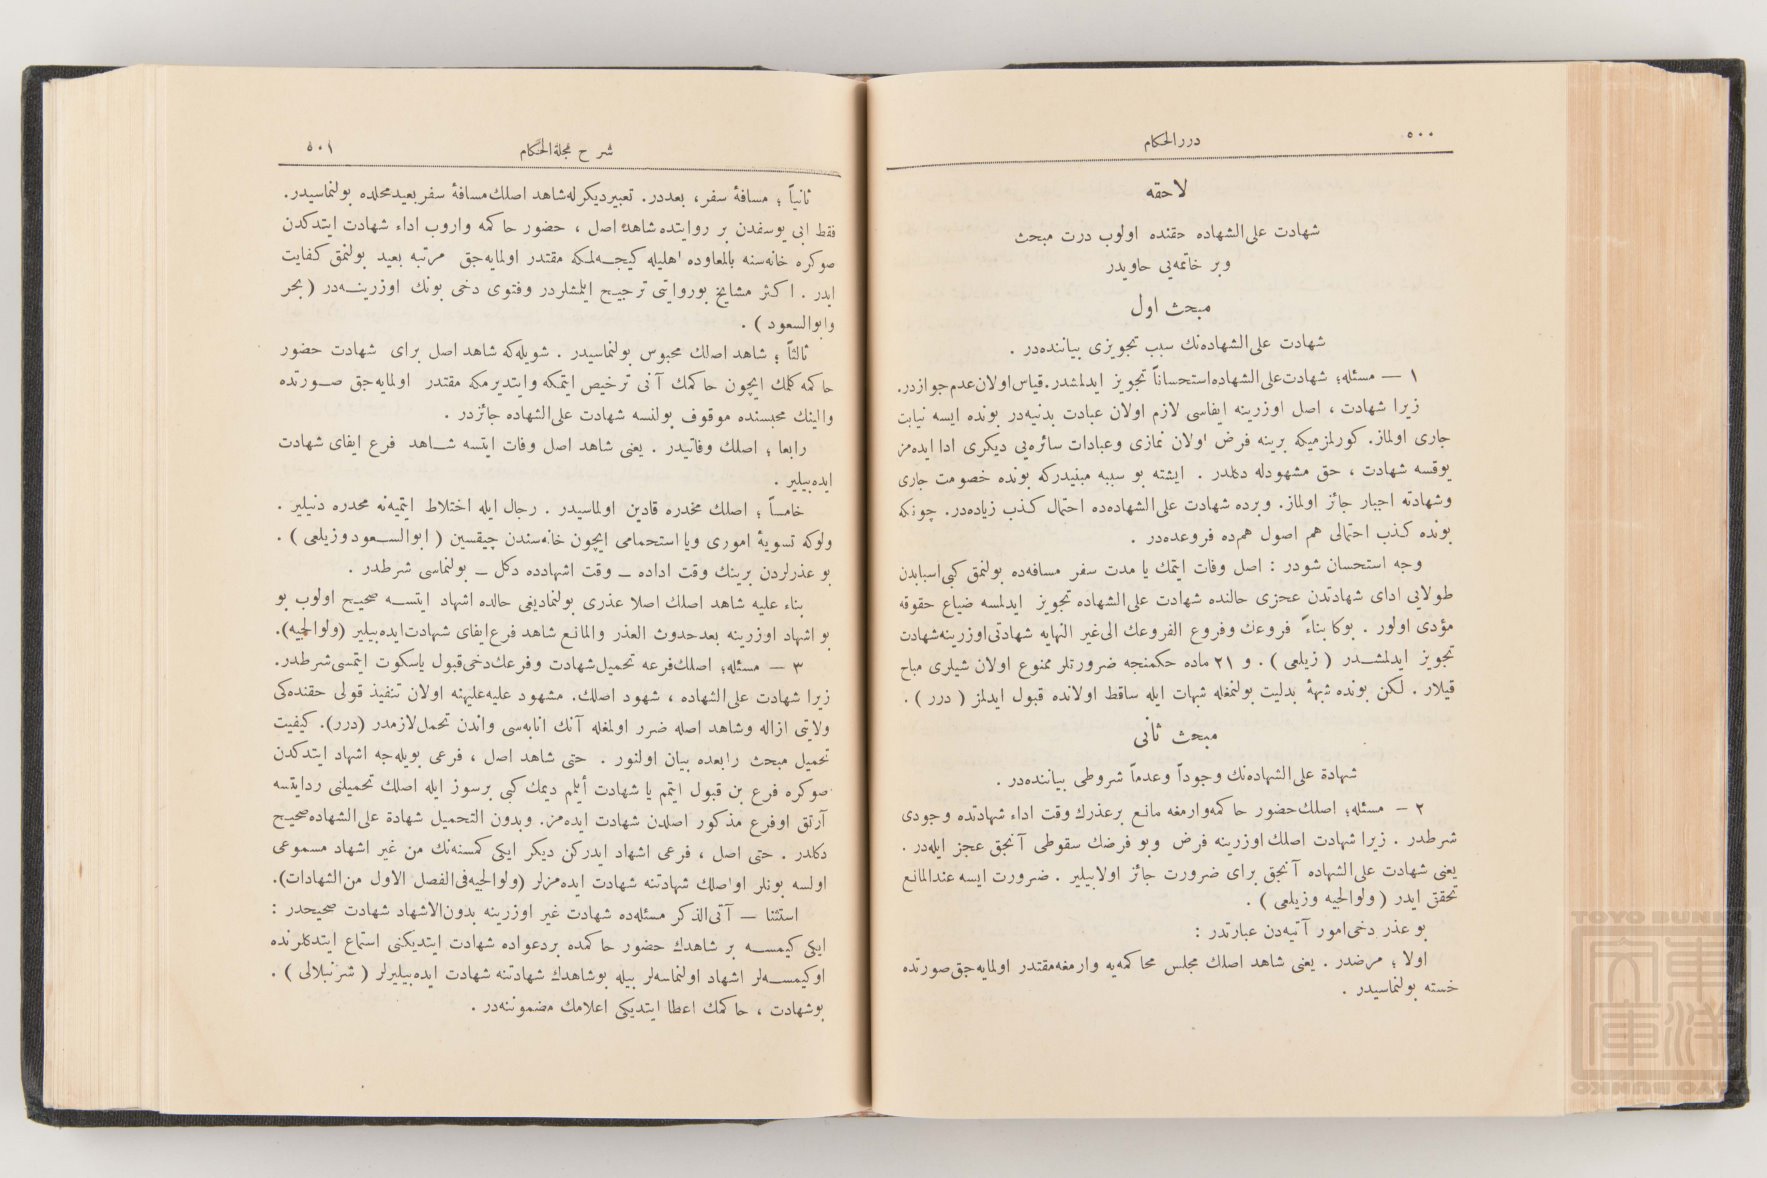 ٥٠٠
دررالحكام
لاحقه
شهادت علی‌الشهاده حقنده اولوب درت مبحث
وبر خاتمه‌یی حاویدر
مبحث اول
شهادت علی‌الشهاده‌نك سبب تجویزی بیاننده‌در .
١ — مسئله؛ شهادت علی‌الشهاده استحساناً تجویز ایدلمشدر. قیاس اولان عدم جوازدر.
زیرا شهادت ، اصل اوزرینه ایفاسی لازم اولان عبادت بدنیه‌در بونده ایسه نیابت
جاری اولماز. كورلمزمیكه برینه فرض اولان نمازی وعبادات سائره‌یی دیكری ادا ایده‌مز
یوقسه شهادت ، حق مشهودله دكلدر . ایشته بو سببه مبنیدركه بونده خصومت جاری
وشهادته اجبار جائز اولماز. وبرده شهادت علی‌الشهاده‌ده احتمال كذب زیاده‌در. چونكه
بونده كذب احتمالی هم اصول هم‌ده فروعده‌در .
وجه استحسان شودر : اصل وفات ایتمك یا مدت سفر مسافه‌ده بولنمق كبی اسبابدن
طولایی ادای شهادتدن عجزی حالنده شهادت علی‌الشهاده تجویز ایدلمسه ضیاع حقوقه
مؤدی اولور . بوكا بناءً فروعك وفروع الفروعك الی‌غیر النهایه شهادتی اوزرینه شهادت
تجویز ایدلمشدر ( زیلعی ) . و ٢١ ماده حكمنجه ضرورتلر ممنوع اولان شیلری مباح
قیلار . لكن بونده شبههٔ بدلیت بولنمغله شبهات ایله ساقط اولانده قبول ایدلمز ( درر ) .
مبحث ثانی
شهادة علی‌الشهاده‌نك وجوداً وعدماً شروطی بیاننده‌در .
٢ — مسئله؛ اصلك حضور حاكمه وارمغه مانع برعذرك وقت اداء شهادتده وجودی
شرطدر . زیرا شهادت اصلك اوزرینه فرض وبو فرضك سقوطی آنجق عجز ایله‌در .
یعنی شهادت علی‌الشهاده آنجق برای ضرورت جائز اولابیلیر . ضرورت ایسه عندالمانع
تحقق ایدر ( ولوالجیه وزیلعی ) .
بو عذر دخی امور آتیه‌دن عبارتدر :
اولا ؛ مرضدر . یعنی شاهد اصلك مجلس محاكمه‌یه وارمغه مقتدر اولمایه‌جق صورتده
خسته بولنماسیدر .
شرح مجلة‌الحكام
٥٠١
ثانیاً ؛ مسافهٔ سفر، بعددر. تعبیر دیكرله شاهد اصلك مسافهٔ سفر بعید محلده بولنماسیدر.
فقط ابی یوسفدن بر روایتده شاهد اصل ، حضور حاكمه واروب اداء شهادت ایتدكدن
صوكره خانه‌سنه بالمعاوده اهلیله كیجه‌لمكه مقتدر اولمایه‌جق مرتبه بعید بولنمق كفایت
ایدر . اكثر مشایخ بوروایتی ترجیح ایلمشلردر وفتوی دخی بونك اوزرینه‌در ( بحر
وابوالسعود ) .
ثالثاً ؛ شاهد اصلك محبوس بولنماسیدر . شویله‌كه شاهد اصل برای شهادت حضور
حاكمه كلمك ایچون حاكمك آنی ترخیص ایتمكه وایتدیرمكه مقتدر اولمایه‌جق صورتده
والینك محبسنده موقوف بولنسه شهادت علی‌الشهاده جائزدر .
رابعا ؛ اصلك وفاتیدر . یعنی شاهد اصل وفات ایتسه شاهد فرع ایفای شهادت
ایده‌بیلیر .
خامساً ؛ اصلك مخدره قادین اولماسیدر . رجال ایله اختلاط ایتمیه‌نه مخدره دنیلیر .
ولوكه تسویهٔ اموری ویا استحمامی ایچون خانه‌سندن چیقسین ( ابوالسعود وزیلعی ) .
بو عذرلردن برینك وقت اداده — وقت اشهادده دكل — بولنماسی شرطدر .
بناء علیه شاهد اصلك اصلا عذری بولنمادیغی حالده اشهاد ایتسه صحیح اولوب بو
بو اشهاد اوزرینه بعدحدوث العذر والمانع شاهد فرع ایفای شهادت ایده‌بیلیر (ولوالجیه).
٣ — مسئله؛ اصلك فرعه تحمیل شهادت وفرعك دخی قبول یاسكوت ایتمسی شرطدر.
زیرا شهادت علی‌الشهاده ، شهود اصلك. مشهود علیه علیهنه اولان تنفیذ قولی حقنده‌كی
ولایتی ازاله وشاهد اصله ضرر اولمغله آنك انابه‌سی واندن تحمل لازمدر (درر). كیفیت
تحمیل مبحث رابعده بیان اولنور . حتی شاهد اصل ، فرعی بویله‌جه اشهاد ایتدكدن
صوكره فرع بن قبول ایتمم یا شهادت أیلم دیمك كبی برسوز ایله اصلك تحمیلنی ردایتسه
آرتق اوفرع مذكور اصلدن شهادت ایده‌مز. وبدون التحمیل شهادة علی‌الشهاده صحیح
دكلدر . حتی اصل ، فرعی اشهاد ایدركن دیكر ایكی كمسنه‌نك من غیر اشهاد مسموعی
اولسه بونلر اواصلك شهادتنه شهادت ایده‌مزلر (ولوالجیه فی‌الفصل الاول من‌الشهادات).
استثنا — آتی‌الذكر مسئله‌ده شهادت غیر اوزرینه بدون‌الاشهاد شهادت صحیحدر :
ایكی كیمسه بر شاهدك حضور حاكمده بردعواده شهادت ایتدیكنی استماع ایتدكلرنده
اوكیمسه‌لر اشهاد اولنماسه‌لر بیله بوشاهدك شهادتنه شهادت ایده‌بیلیرلر ( شرنبلالی ) .
بوشهادت ، حاكمك اعطا ایتدیكی اعلامك مضموننه‌در .
TOYO BUNKO
東洋
文庫
TOYO BUNKO